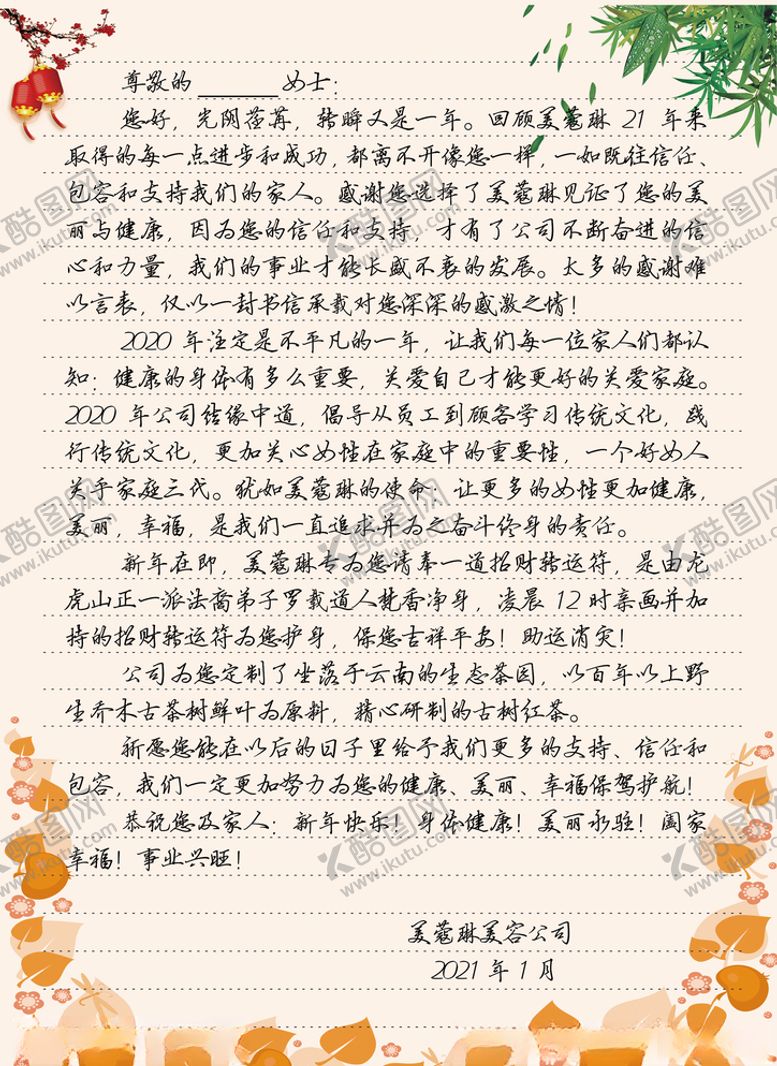 尊敬的______女士：
您好，光阴荏苒，转瞬又是一年。回顾美蔻琳 21 年来
取得的每一点进步和成功，都离不开像您一样，一如既往信任、
包容和支持我们的家人。感谢您选择了美蔻琳见证了您的美
丽与健康，因为您的信任和支持，才有了公司不断奋进的信
心和力量，我们的事业才能长盛不衰的发展。太多的感谢难
以言表，仅以一封书信承载对您深深的感激之情！
2020 年注定是不平凡的一年，让我们每一位家人们都认
知：健康的身体有多么重要，关爱自己才能更好的关爱家庭。
2020 年公司结缘中道，倡导从员工到顾客学习传统文化，践
行传统文化，更加关心女性在家庭中的重要性，一个好女人
关乎家庭三代。犹如美蔻琳的使命：让更多的女性更加健康，
美丽，幸福，是我们一直追求并为之奋斗终身的责任。
新年在即，美蔻琳专为您请奉一道招财转运符，是由龙
虎山正一派法裔弟子罗载道人焚香净身，凌晨 12 时亲画并加
持的招财转运符为您护身，保您吉祥平安！助运消灾！
公司为您定制了坐落于云南的生态茶园，以百年以上野
生乔木古茶树鲜叶为原料，精心研制的古树红茶。
祈愿您能在以后的日子里给予我们更多的支持、信任和
包容，我们一定更加努力为您的健康、美丽、幸福保驾护航！
恭祝您及家人：新年快乐！身体健康！美丽永驻！阖家
幸福！事业兴旺！
美蔻琳美容公司
2021 年 1 月
酷图网
www.ikutu.com